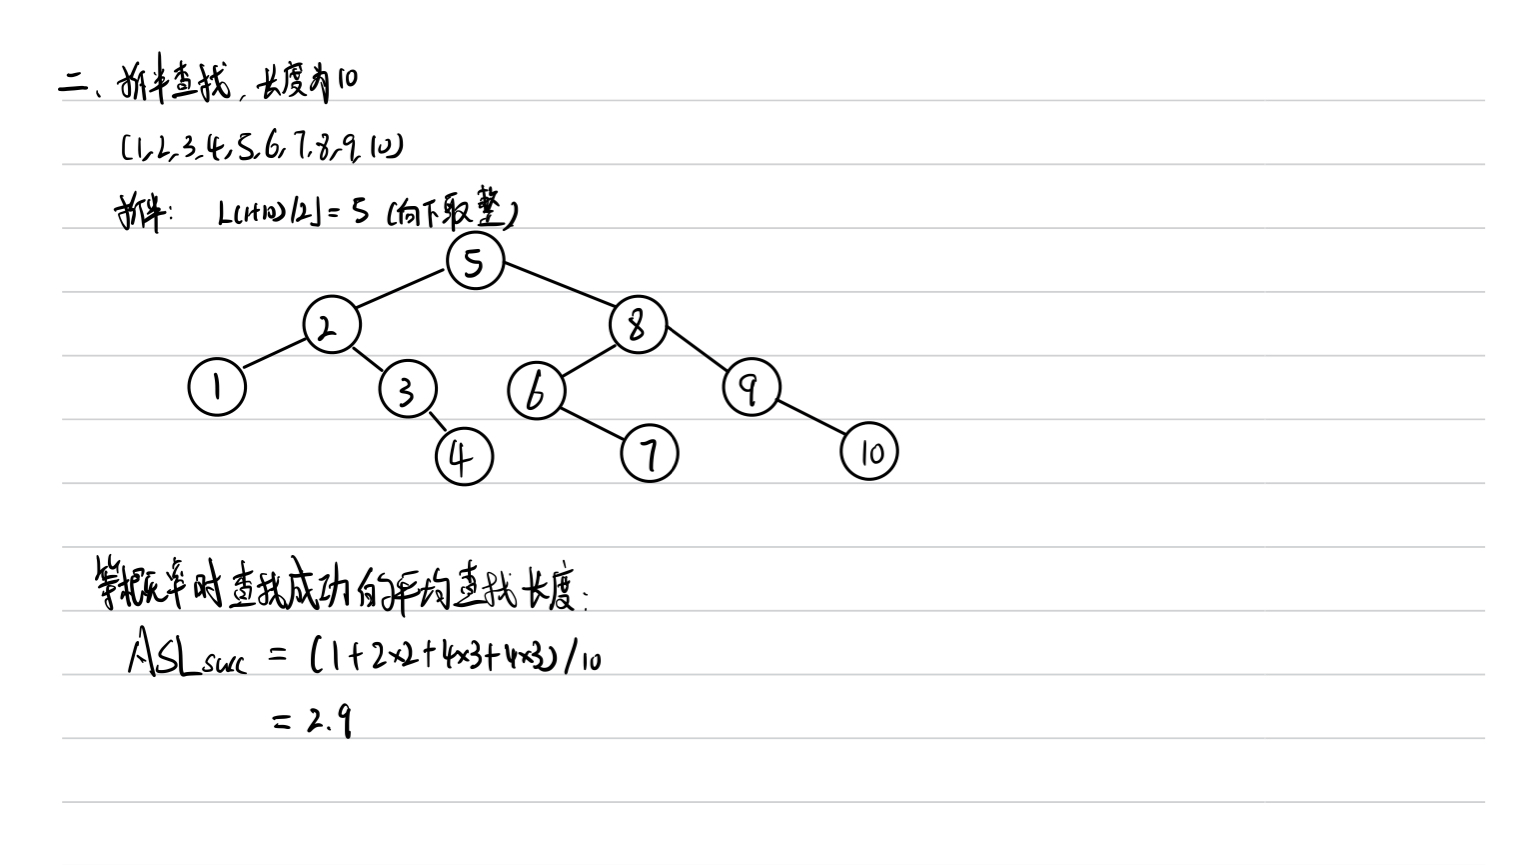 二、折半查找,长度为10
(1,2,3,4,5,6,7,8,9,10)
折半: ⌊(1+10)/2⌋=5 (向下取整)
5
2 8
1 3 6 9
4 7 10
等概率时查找成功的平均查找长度:
ASLsucc = (1+2×2+4×3+4×3)/10
= 2.9